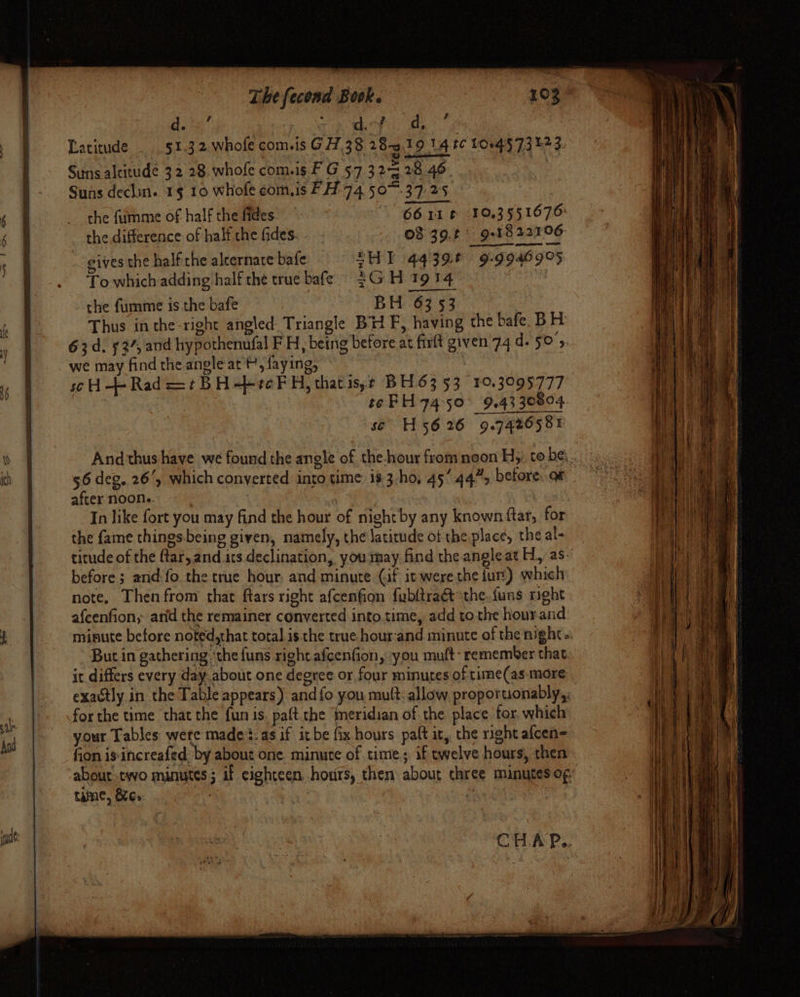 The second Book. 103
d. ′ d. ′ d. ′
Latitude 51.32 whose com.is G H 38 28 19 14 tc 10.4573123.
Suns altitude 32 28. whose com.is F G 57 32 28 46
Suns declin. 15 10 whose com.is F H 74 50 37.25
the summe of half the sides 66 11 t 10.3551676
the difference of half the sides. 08 39.t 9.1822106
gives the half the alternate base ½ H I 44 39.t 9.9946905
To which adding half the true base ½ G H 19 14
the summe is the base B H 63 53
Thus in the right angled Triangle B H F, having the base B H
63 d. 53′, and hypothenusal F H, being before at first given 74 d. 50′,
we may find the angle at H, saying,
sc H + Rad = t B H + tc F H, that is, t B H 63 53 10.3095777
tc F H 74 50 9.4330804
sc H 56 26 9.7426581
And thus have we found the angle of the hour from noon H, to be
56 deg. 26′, which converted into time is 3 ho, 45′ 44″, before or
after noon.
In like sort you may find the hour of night by any known star, for
the same things being given, namely, the latitude of the place, the al-
titude of the star, and its declination, you may find the angle at H, as
before; and so the true hour and minute (if it were the sun) which
note, Then from that stars right ascension substract the suns right
ascension, and the remainer converted into time, add to the hour and
minute before noted, that total is the true hour and minute of the night.
But in gathering the suns right ascension, you must remember that
it differs every day about one degree or four minutes of time (as more
exactly in the Table appears) and so you must allow proportionably,
for the time that the sun is past the meridian of the place for which
your Tables were made: as if it be six hours past it, the right ascen-
sion is increased by about one minute of time; if twelve hours, then
about two minutes; if eighteen hours, then about three minutes of
time, &c.
CHAP.